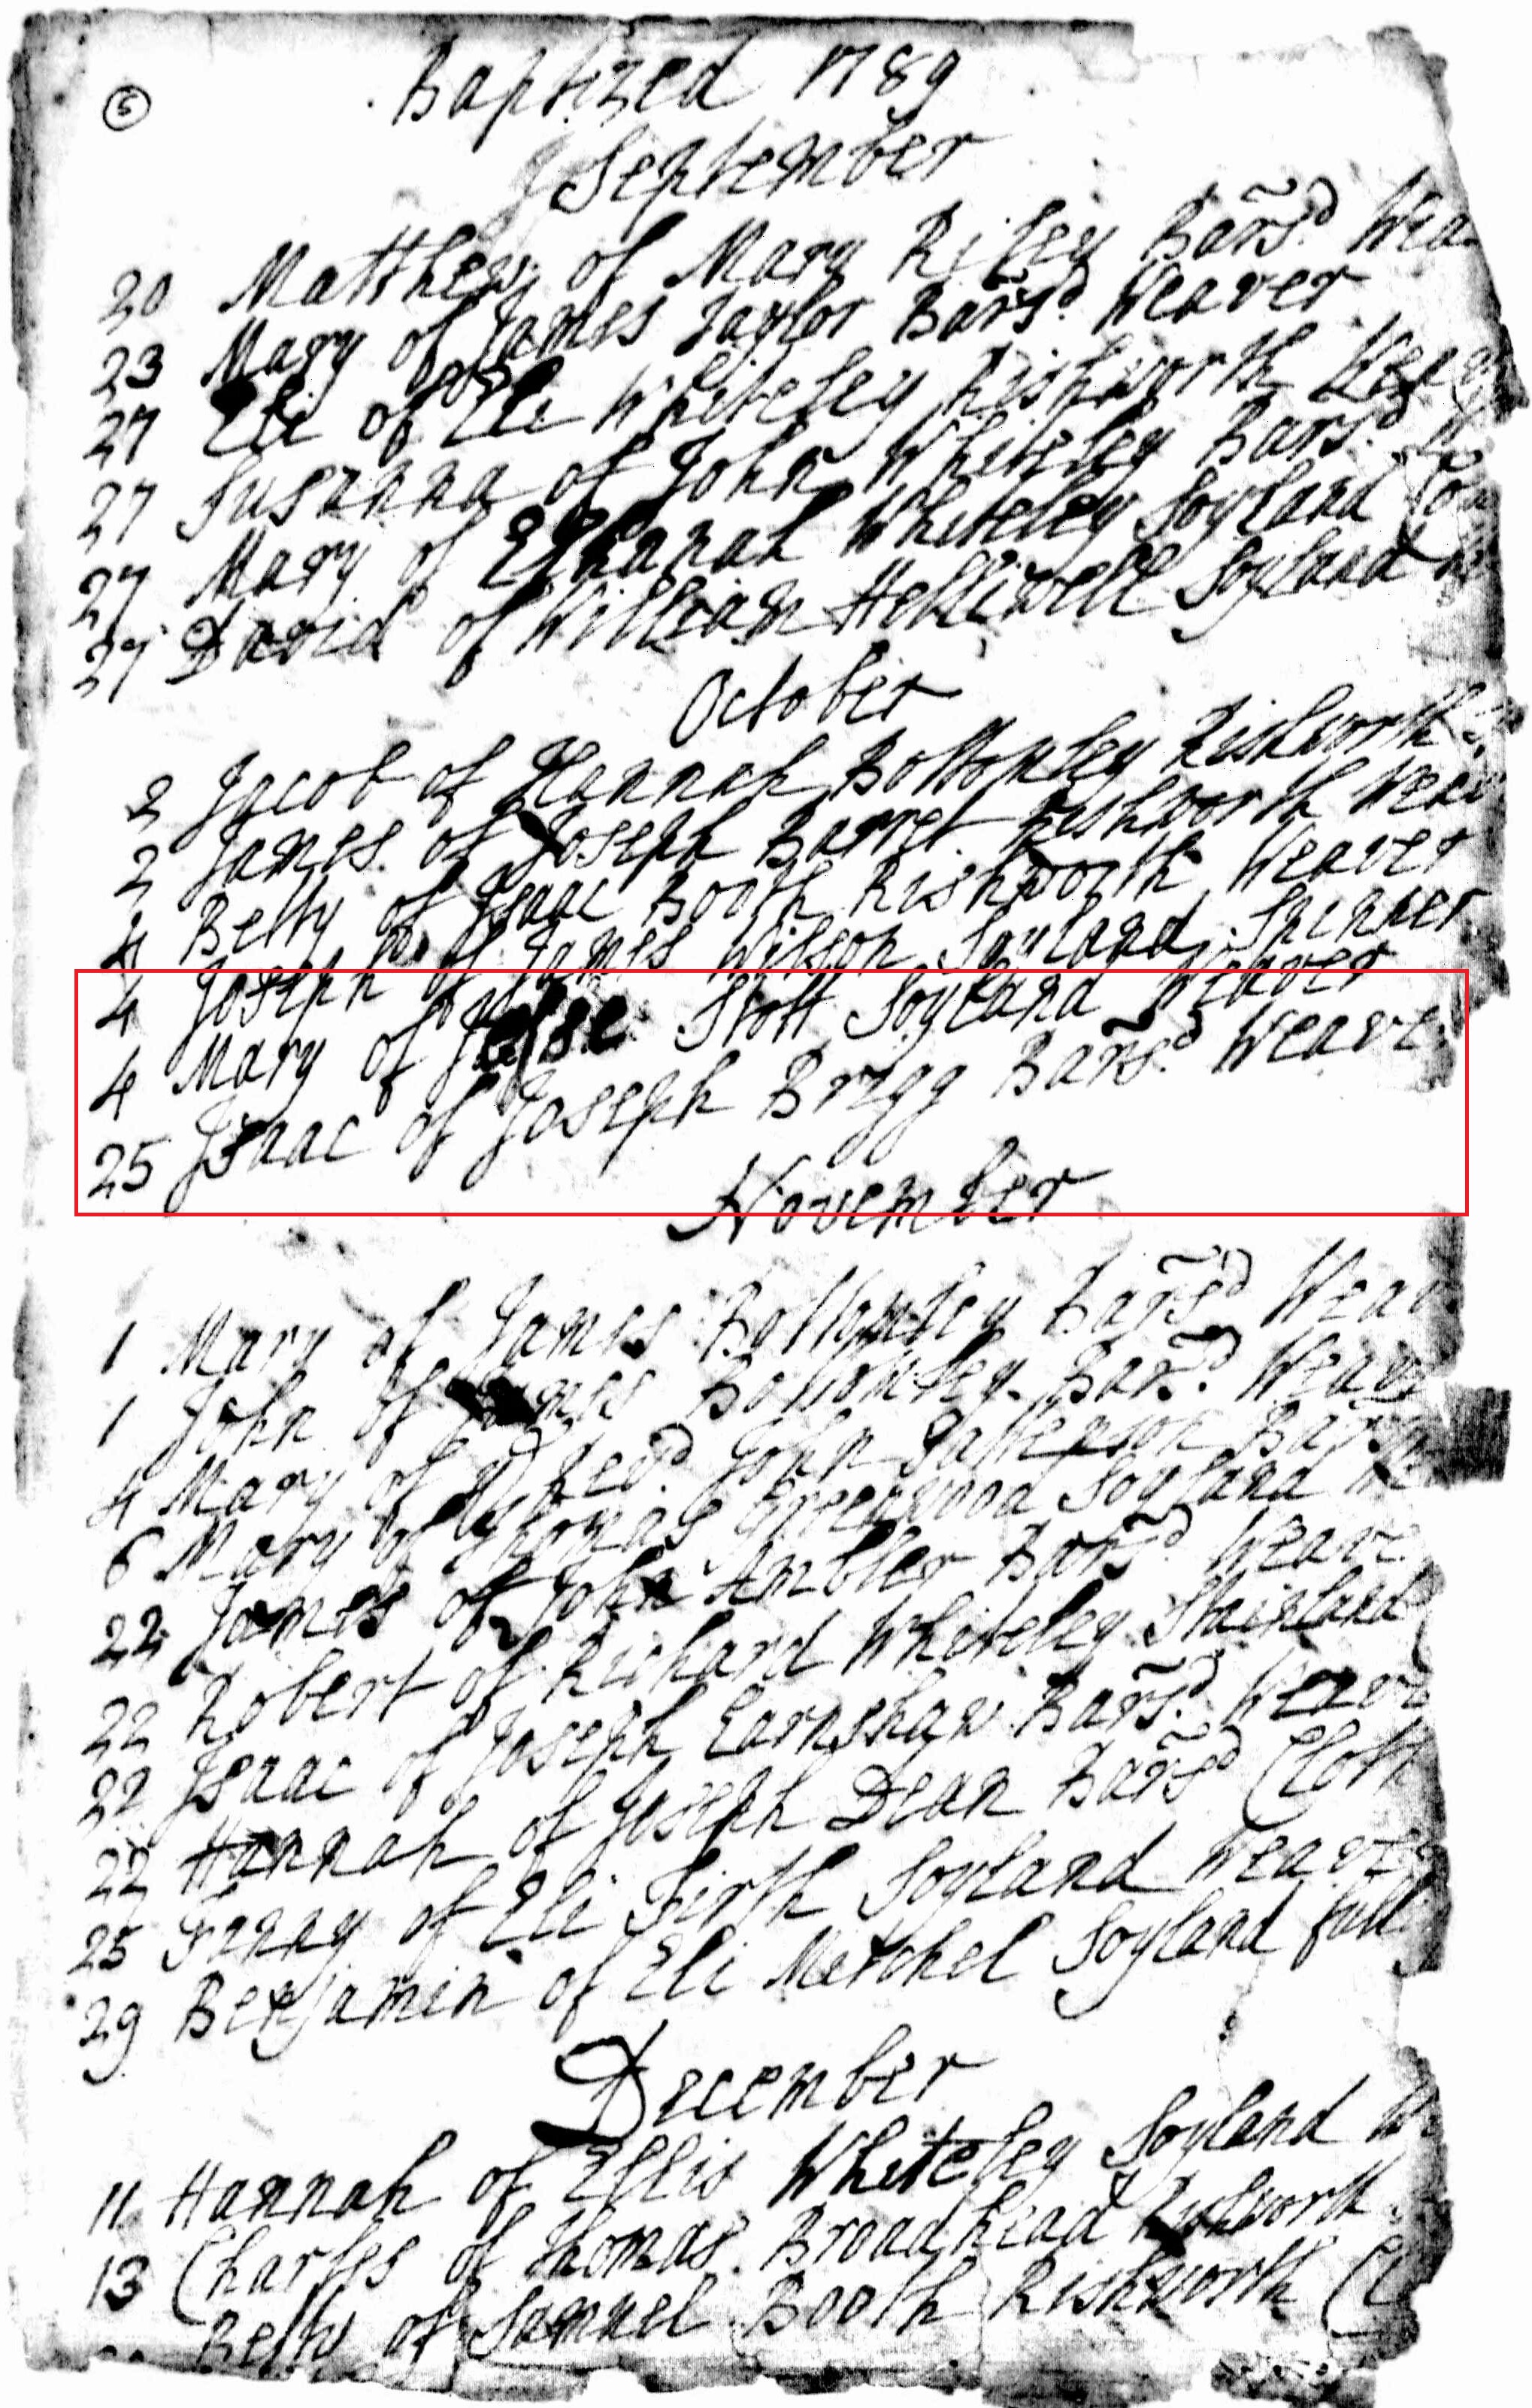 5
Baptized 1789
September
20 Matthew of Mary Riley Bars.d Wea
23 Mary of James Taylor Bars.d Weaver
27 Eli of Eli Whiteley Rishworth
27 Susanna of John Whiteley Bars.d
27 Mary of Elkanah Whiteley Soyland
27 David of William Helliwell Soyland
October
2 Jacob of Hannah Bottomley Rishworth
2 James of Joseph Barret Rishworth Weav
4 Betty of Isaac Booth Rishworth Weaver
4 Joseph of James Wilson Soyland Spinner
4 Mary of Jesse Stott Soyland Weaver
25 Isaac of Joseph Brigg Bars.d Weaver
November
1 Mary of James Bottomley Bars.d Weav
1 John of James Bottomley Bars.d Weav
4 Mary of John Patterson Bars
6 Mary of Thomas Greenwood Soyland
22 James of John Ambler Bars.d Weave
22 Robert of Richard Whiteley Stainland
22 Isaac of Joseph Earnshaw Bars.d Weave
22 Hannah of Joseph Dean Bars.d Cloth
25 Fanny of Eli Firth Soyland Weaver
29 Benjamin of Eli Metchel Soyland full
December
11 Hannah of Ellis Whiteley Soyland
13 Charles of Thomas Broadhead Rishworth
Betty of Samuel Booth Rishworth